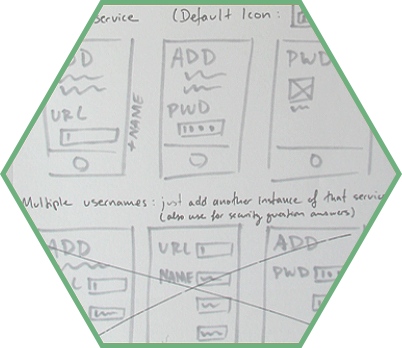 Service (Default Icon:
ADD ADD PWD
URL PWD
+NAME
Multiple usernames: just add another instance of that service
(also use for security question answers)
ADD URL ADD
NAME PWD